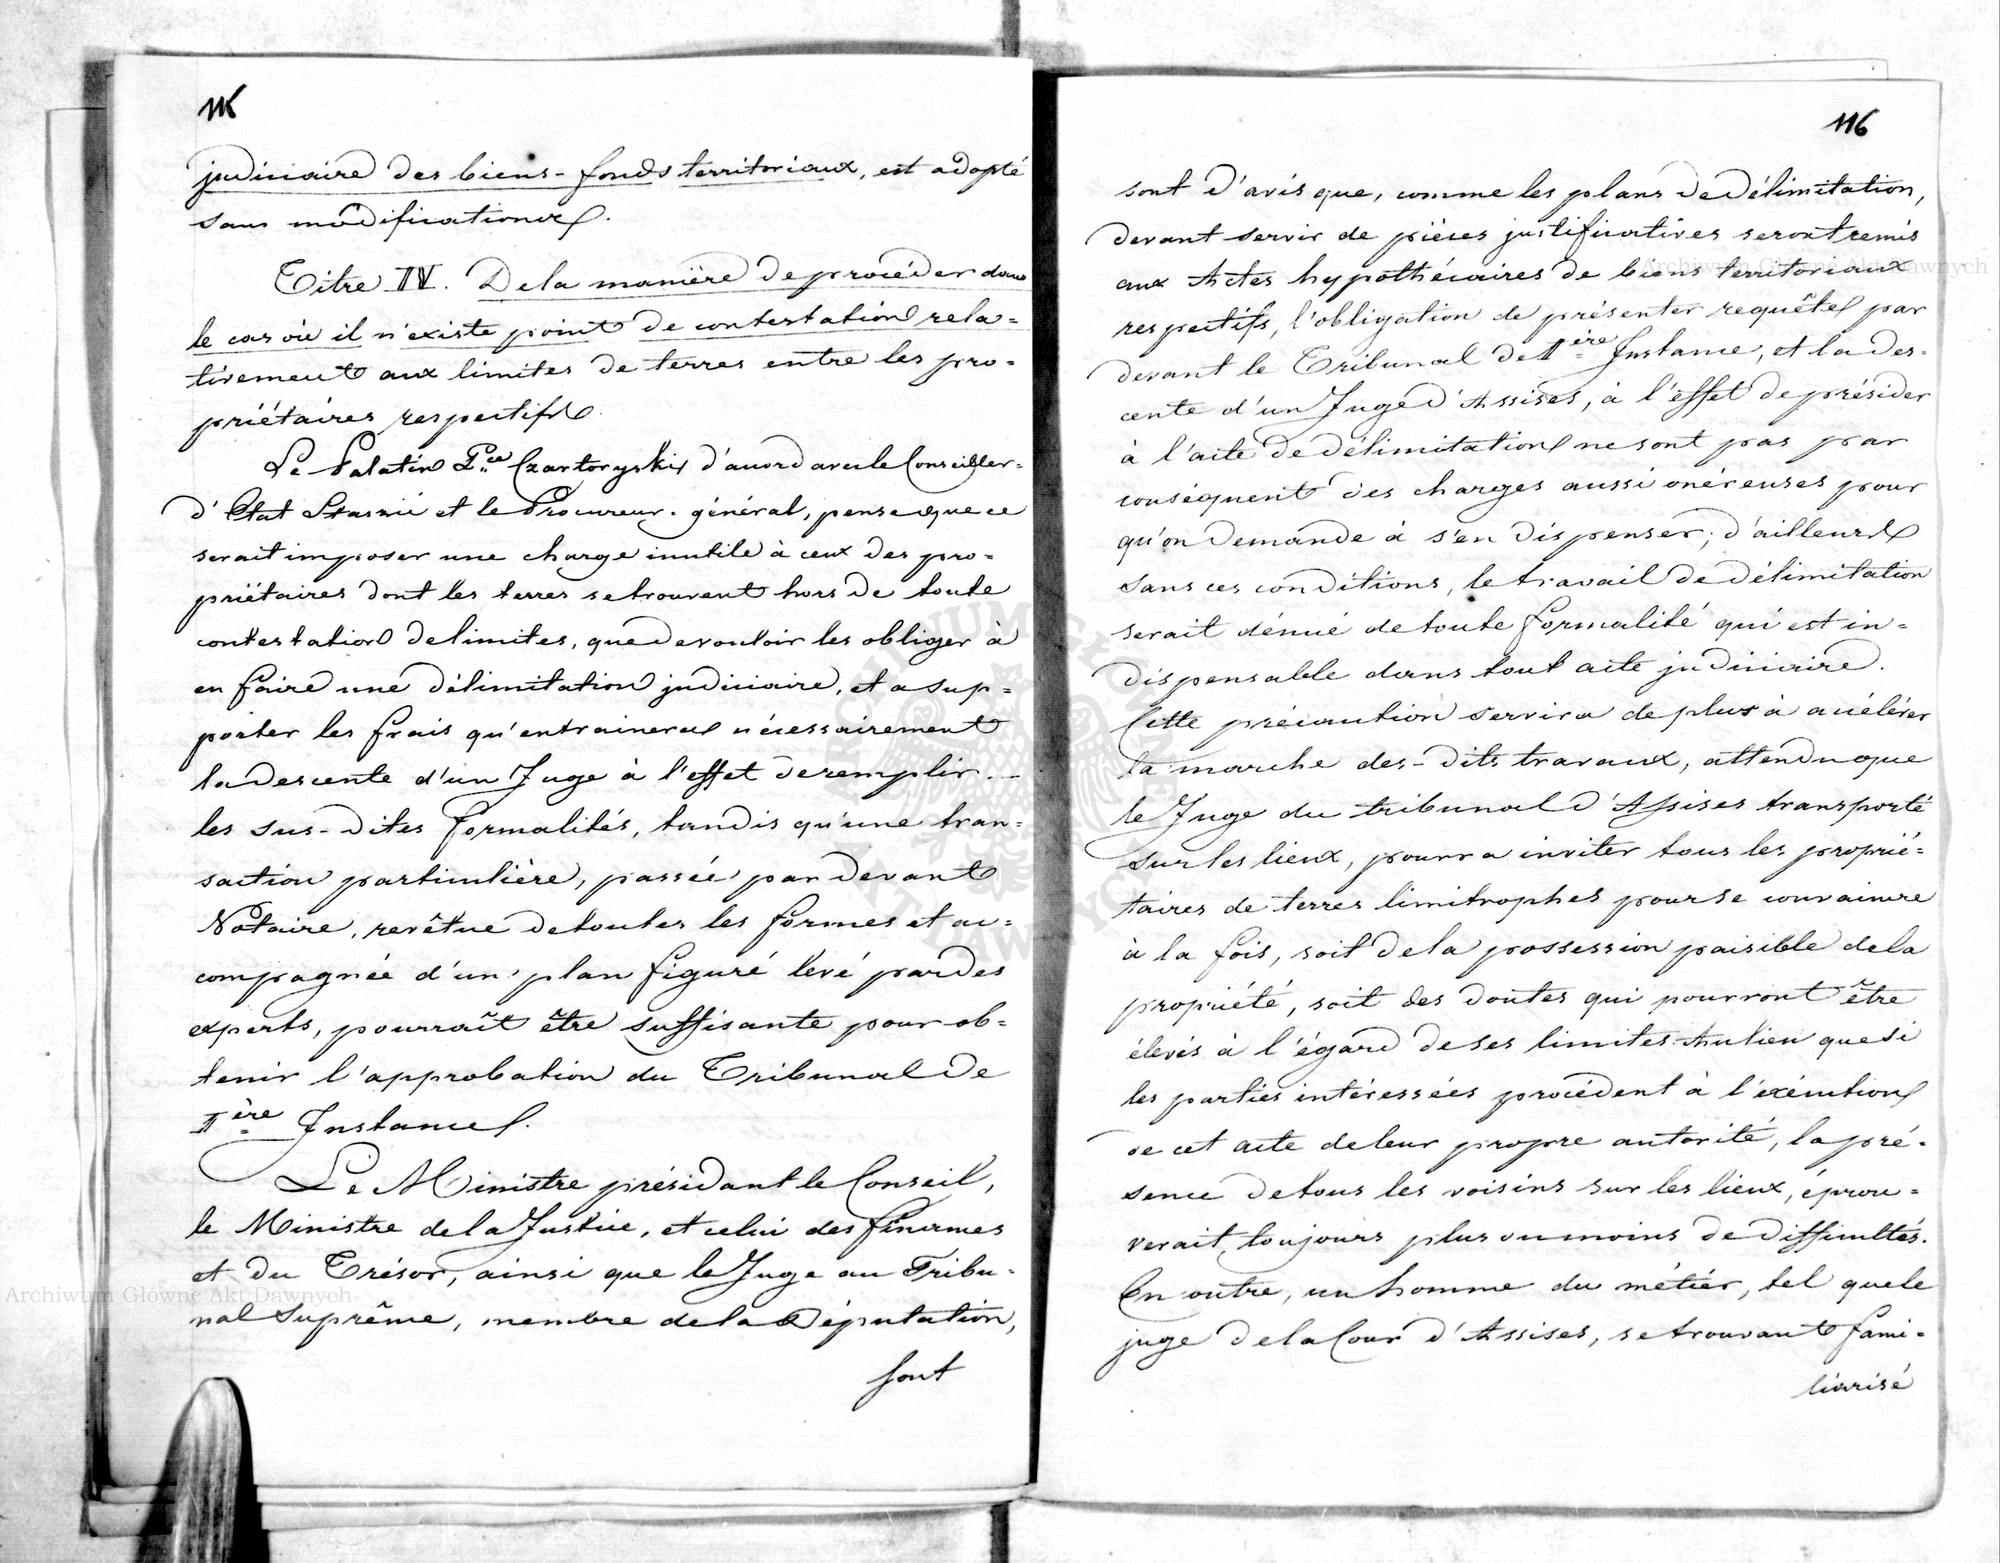 115
judiciaire des biens-fonds territoriaux, est adopté
sans modifications.
Titre IV. De la manière de procéder dans
le cas où il n'existe point de contestation rela=
tivement aux limites de terres entre les pro=
priétaires respectifs
Le Palatin P.ce Czartoryski d'accord avec le Conseiller=
d'Etat Staszic et le Procureur-général, pense que ce
serait imposer une charge inutile à ceux des pro=
priétaires dont les terres se trouvent hors de toute
contestation de limites, que de vouloir les obliger à
en faire une délimitation judiciaire, et a sup=
porter les frais qu'entrainera nécessairement
la descente d'un Juge à l'effet de remplir
les sus-dites formalités, tandis qu'une tran=
saction particulière, passée par devant
Notaire, revêtue de toutes les formes et ac=
compagnée d'un plan figuré levé par des
experts, pourraît être suffisante pour ob=
tenir l'approbation du Tribunal de
Ière Instance.
Le Ministre présidant le Conseil,
le Ministre de la Justice, et celui des finances
et du Trésor, ainsi que le Juge au Tribu=
nal Suprême, membre de la Députation,
sont
116
sont d'avis que, comme les plans de délimitation,
devant servir de pièces justificatives seront remis
aux Actes hypothécaires de biens territoriaux
respectifs, l'obligation de présenter requête par
devant le Tribunal de Ière Instance, et la des=
cente d'un Juge d'Assises, à l'effet de présider
à l'acte de délimitation ne sont pas par
conséquent des charges aussi onéreuses pour
qu'on demande à s'en dispenser; d'ailleurs
sans ces conditions, le travail de délimitation
serait dénué de toute formalité qui est in=
dispensable dans tout acte judiciaire.
Cette précaution servira de plus à accélérer
la marche des-dits travaux, attendu que
le Juge du tribunal d'Assises transporté
sur les lieux, pourra inviter tous les proprié=
taires de terres limitrophes pour se convaincre
à la fois, soit de la possession paisible de la
propriété, soit des doutes qui pourront être
élevés à l'égard de ses limites. Au lieu que si
les parties intéressées procédent à l'exécution
de cet acte de leur propre autorité, la pré=
sence de tous les voisins sur les lieux, éprou=
verait, toujours plus ou moins de difficultés.
En outre, un homme du métier, tel que le
juge de la Cour d'Assises, se trouvant fami=
liarisé
Archiwum Główne Akt Dawnych
Archiwum Główne Akt Dawnych
ARCHIWUM GŁÓWNE AKT DAWNYCH